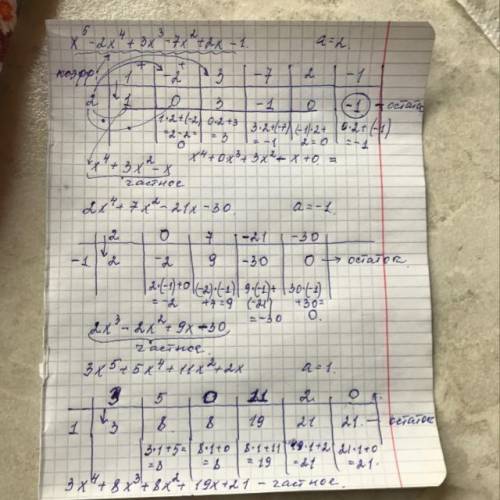 x⁵-2x⁴+3x³-7x²+2x-1. a=2.
коэфф. 1 -2 3 -7 2 -1
2 1 0 3 -1 0 -1 - остат.
1·2+(-2) 0·2+3 3·2+(-7) (-1)·2+ 0·2+(-1)
=2-2= =3 =-1 2=0 =-1
0
x⁴+3x²-x x⁴+0x³+3x²-x+0=
частное
2x⁴+7x²-21x-30. a=-1.
2 0 7 -21 -30
-1 2 -2 9 -30 0 → остаток
2·(-1)+0 (-2)·(-1) 9·(-1)+ 30·(-1)
=-2 +7=9 (-21) +30=
=-30 0.
2x³-2x²+9x-30
частное.
3x⁵+5x⁴+11x²+2x a=1.
3 5 0 11 2 0
1 3 8 8 19 21 21 - остаток
3·1+5= 8·1+0 8·1+11 19·1+2 21·1+0
=8 =8 =19 =21 =21.
3x⁴+8x³+8x²+19x+21 - частное.